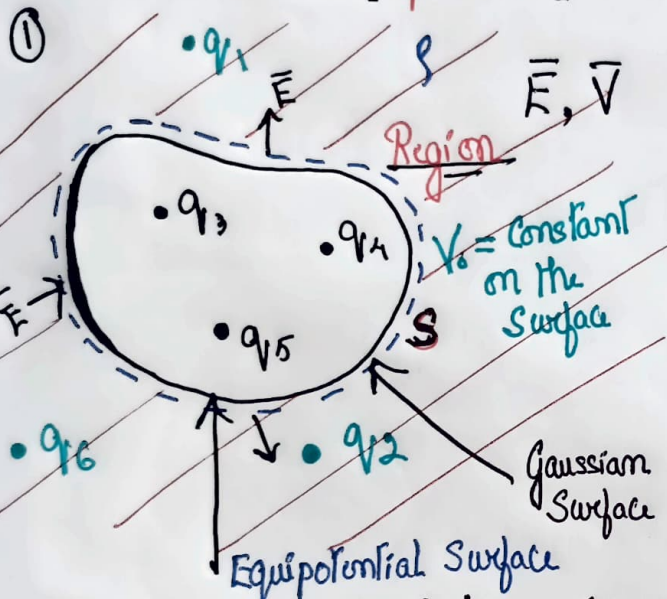 ①
q1
ρ
E̅, V̅
E̅
Region
q3
q4
V₀ = Constant
on the
Surface
E̅
q5
S
q6
q2
Gaussian
Surface
Equipotential Surface